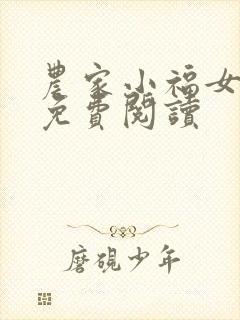 農家小福女
免費閱讀
磨硯少年